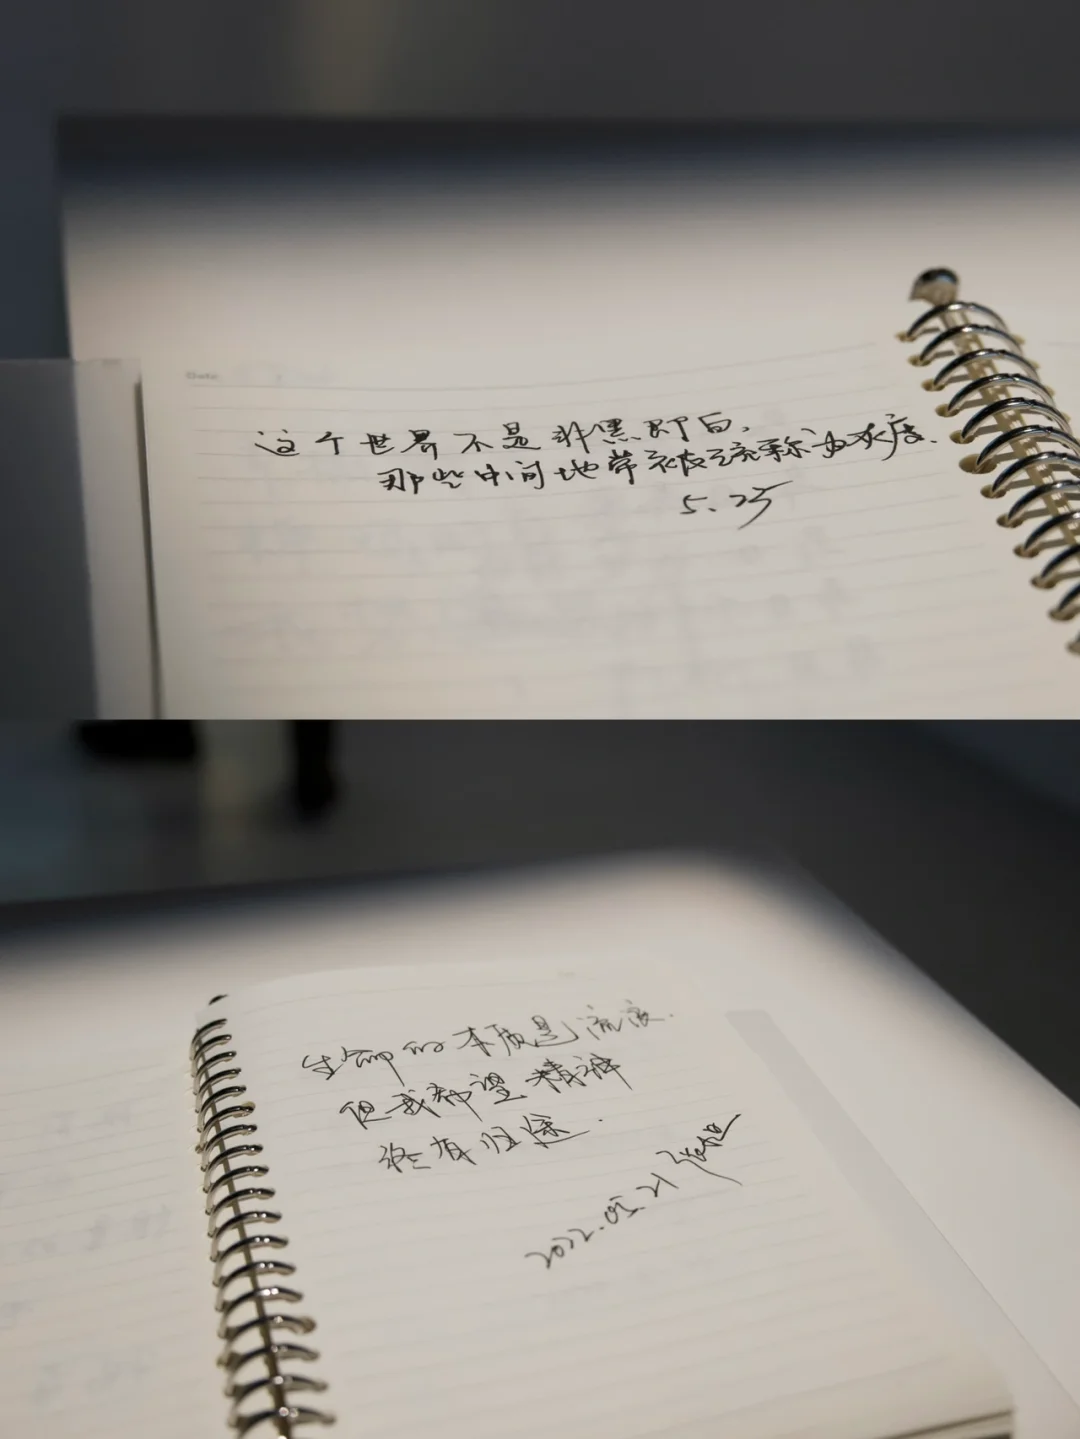 Date
这个世界不是非黑即白,
那些中间地带被统称为灰度.
5.25
生命的本质是流浪.
但我希望精神
终有归途.
2022.05.21